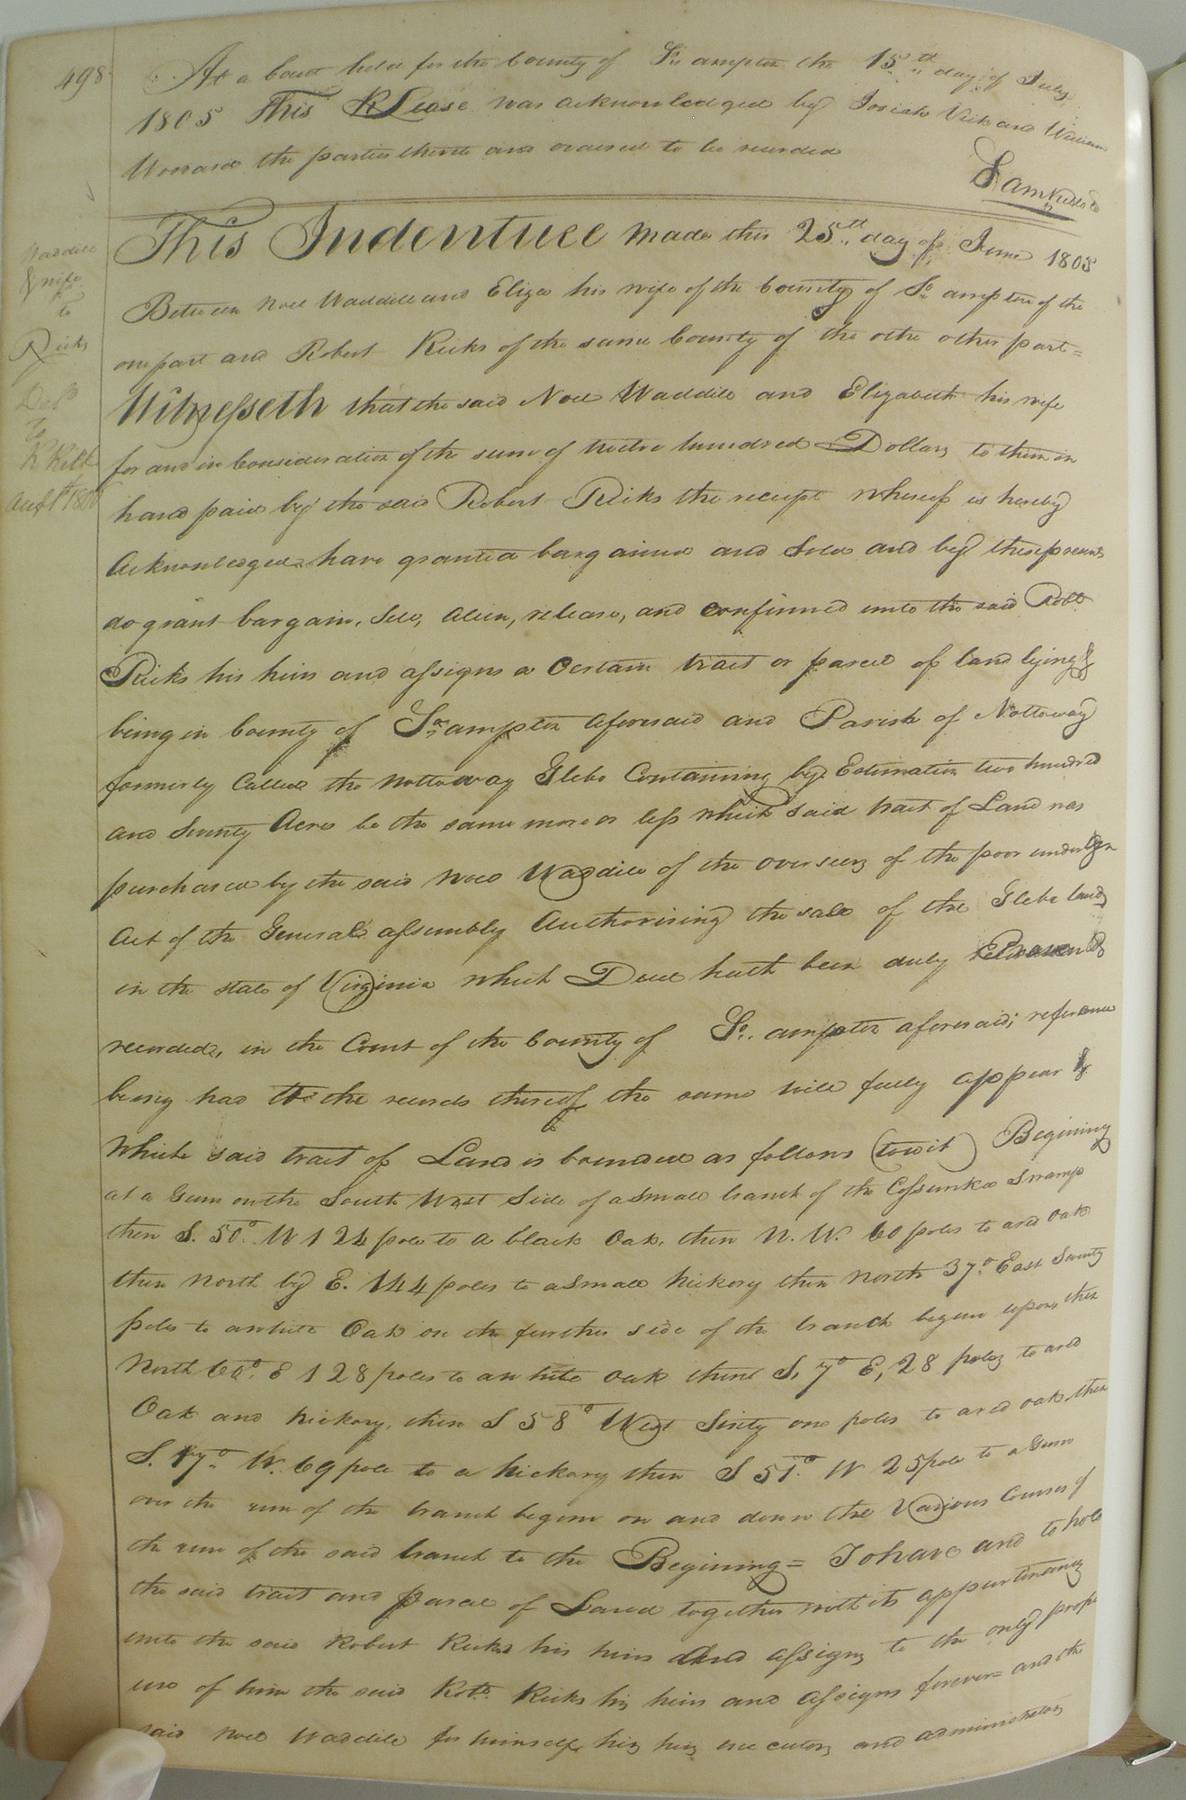 498
At a Court held for the County of So. ampton the 15th day of July
1805 This RLease was acknowledged by Josiah Vick and William
Woward the parties thereto and ordered to be recorded
Sam
This Indenture made this 25th day of June 1805
Between Noel Waddill and Eliza his wife of the County of So. ampton of the
one part and Robert Ricks of the same County of the othe other part=
Witnesseth that the said Noel Waddill and Elizabeth his wife
for and in Consideration of the sum of twelve hundred Dollars to them in
hand paid by the said Robert Ricks the receipt whereof is hereby
Acknowledged have granted bargained and Sold and by these presents
do grant bargain, Sell, alien, release, and confirmed unto the said Robt.
Ricks his heirs and assigns a Certain tract or parcel of land lying &
being in County of So. ampton aforesaid and Parish of Nottoway
formerly Called the nottoway Glebe Containing by Estimation two hundred
and Seventy Acres be the same more or less which said tract of Land was
purchased by the said Noel Waddill of the overseers of the poor under an
Act of the General assembly Authorising the sale of the Glebe lands
in the state of Virginia which Deed hath been duly
recorded, in the Court of the County of So. ampton aforesaid; reference
being had to the records thereof the same will fully appear &
Which said tract of Land is bounded as follows (towit) Begining
at a Gum on the South West Side of a small branch of the Cossunkoe Swamp
then S. 50° W 124 pole to a black Oak, then N. W. 60 poles to a red oak
then North by E. 144 poles to a small hickory then North 37° East Seventy
poles to a white Oak on the further side of the branch begun upon, then
North 60° E 128 poles to a white oak thence S. 7° E, 28 poles to a red
Oak and hickory, then S 58° West Sixty one poles to a red oak, then
S. 17° W. 69 pole to a hickory then S 51° W 25 pole to a Gum
over the run of the branch begun on and down the Various Courses of
the run of the said branch to the Begining= To have and to hold
the said tract and parcel of Land together with its appurtenances
unto the said Robert Ricks his heirs And assigns to the only proper
use of him the said Robt. Ricks his heirs and assigns forever= and the
said Noel Waddill for himself his heirs executors and administrators
Waddill
& wife
to
Ricks
Deld
to
R Ricks
Augst 180